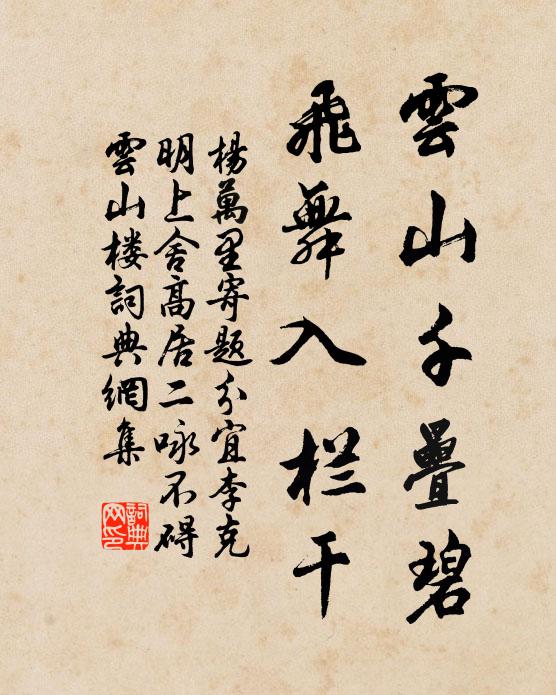 雲山千疊碧
飛舞入栏干
楊萬里寄題分宜李克
明上舍高居二咏不碍
雲山楼詞典網集
詞典网印